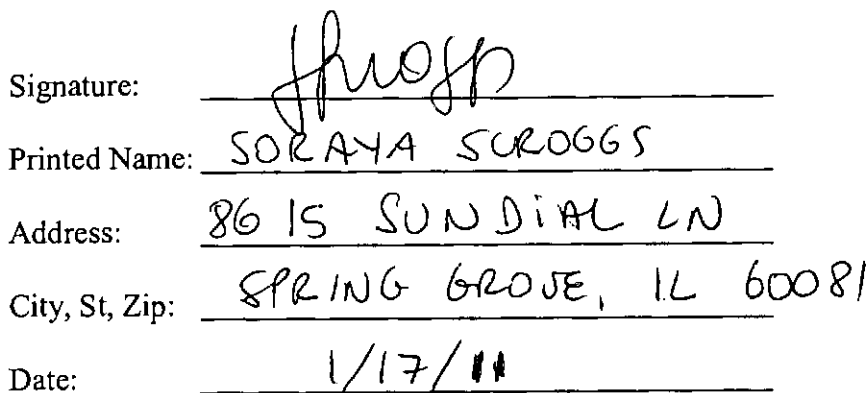 Signature:
Printed Name: SORAYA SCROGGS
Address: 8615 SUNDIAL LN
City, St, Zip: SPRING GROVE, IL 60081
Date: 1/17/11